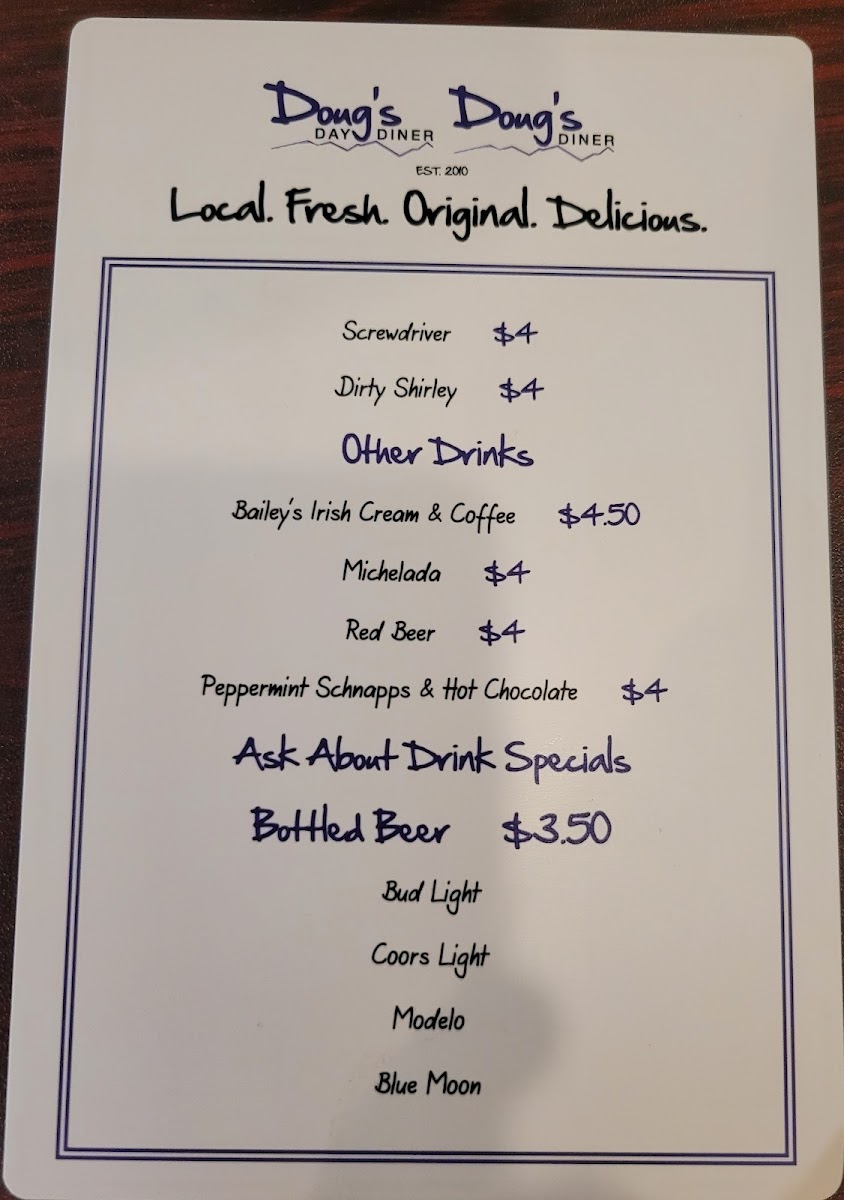 Doug's Doug's
DAY DINER DINER
EST. 2010
Local. Fresh. Original. Delicious.
Screwdriver $4
Dirty Shirley $4
Other Drinks
Bailey's Irish Cream & Coffee $4.50
Michelada $4
Red Beer $4
Peppermint Schnapps & Hot Chocolate $4
Ask About Drink Specials
Bottled Beer $3.50
Bud Light
Coors Light
Modelo
Blue Moon